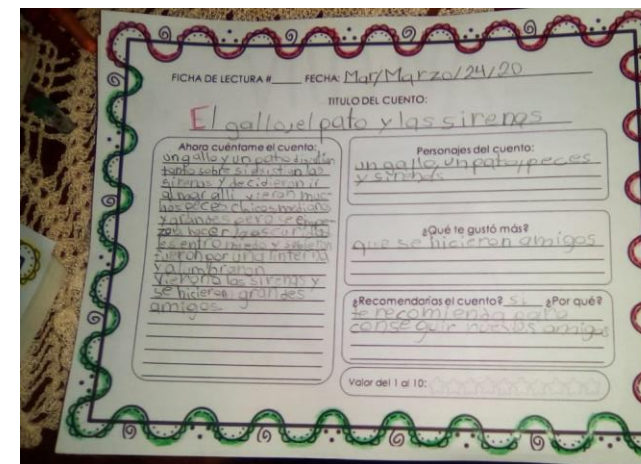 FICHA DE LECTURA #____ FECHA: Mar/Marzo/24/20
TITULO DEL CUENTO:
El gallo, el pato y las sirenas
Ahora cuéntame el cuento:
un gallo y un pato
tanto sobre si esistian las
sirenas y decidieron ir
al mar alli vieron muc
hos peces chicos medianos
y grandes pero se
zo a hacer la oscuridad
les entro miedo y subieron
fueron por una linterna
y alumbraron
vieron a las sirenas y
se hicieron grandes
amigos.
Personajes del cuento:
un gallo, un pato, peces
y sirenas
¿Qué te gustó más?
que se hicieron amigos
¿Recomendarías el cuento? si ¿Por qué?
te recomienda para
conseguir nuevos amigos
Valor del 1 al 10: